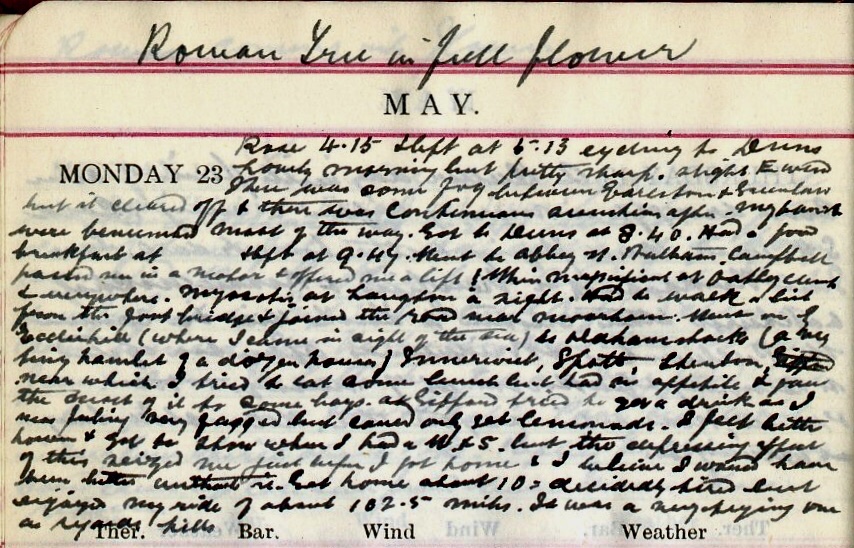 Rowan Tree in full flower
MAY.
Rose 4.15 left at 5.13 cycling to Duns
MONDAY 23
lovely morning but pretty sharp. slight E wind
There was some fog between Earlston & Greenlaw
but it cleared off & there was continuous sunshine after. My hands
were benumbed most of the way. Got to Duns at 8.40. Had a good
breakfast at left at 9.45. Went to Abbey St. Bathans. Campbell
passed me in a motor & offered me a lift! Whin magnificent at
& everywhere. Myosotis at a sight. Had to walk a bit
from the foot bridge & joined the road near Went on by
Ecclaw hill (where I came in sight of the sea) to Oldhamstocks (a very
tiny hamlet of a dozen houses) Innerwick, Spott, Stenton,
near which I tried to eat some lunch but had no appetite & gave
the most of it to some boys. At Gifford tried to get a drink as I
was feeling very fagged but could only get lemonade. I felt better
however & got to Stow where I had a W & S. but the depressing effect
of this seized me just before I got home & I believe I would have
been better without it. Got home about 10 = decidedly tired but
enjoyed my ride of about 102.5 miles. It was a very trying one
as regards hills
Ther. Bar. Wind Weather